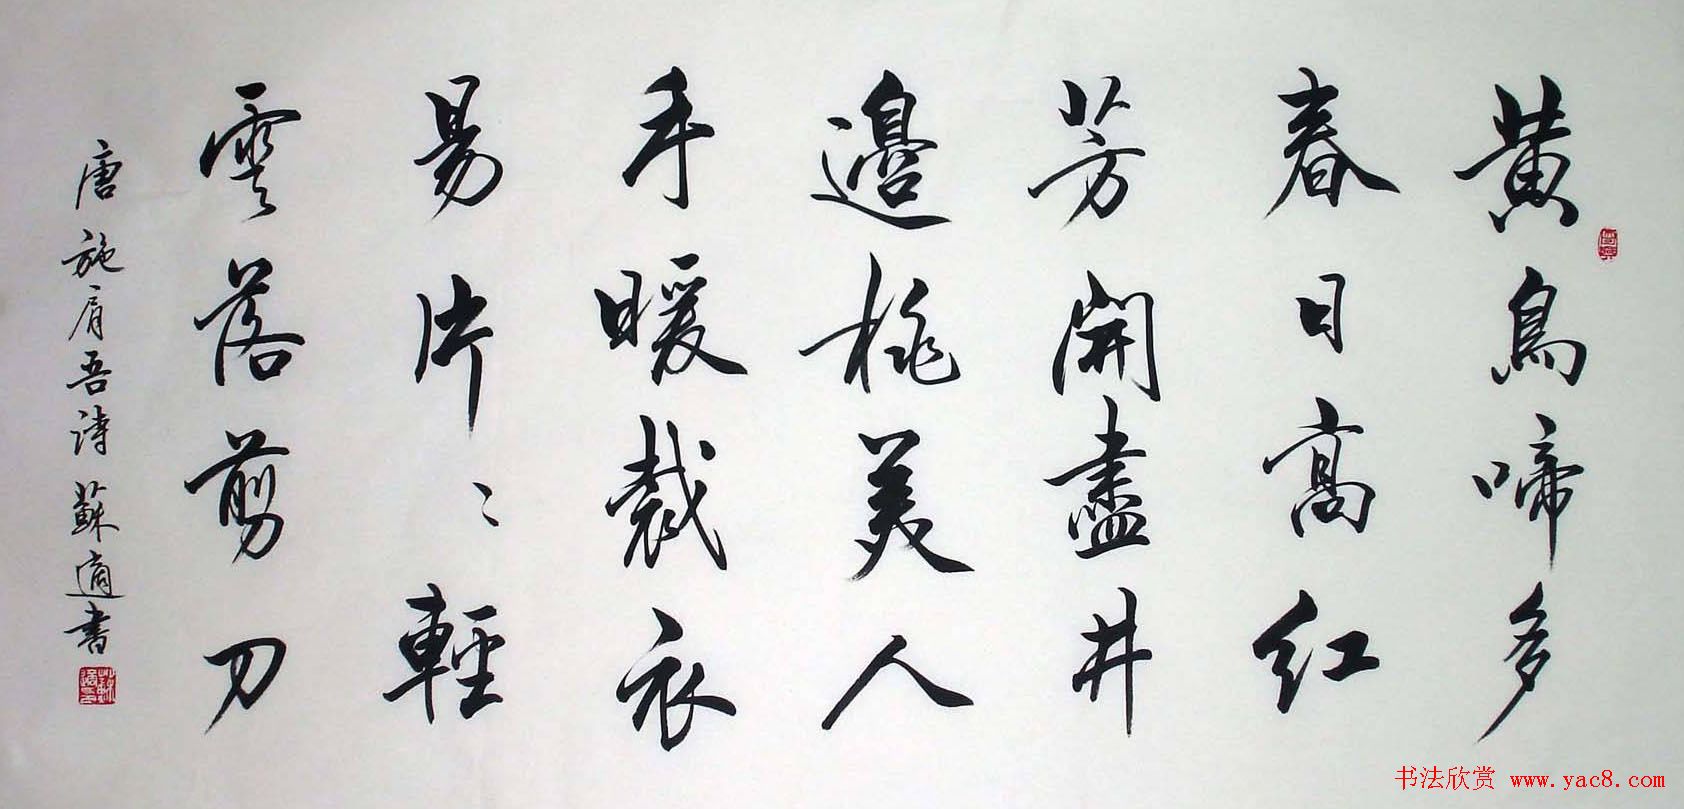 黄鳥啼多
春日高紅
芳開盡井
邊桃美人
手暖裁衣
易片〻輕
雲落剪刀
唐施肩吾詩 蘇適書
书法欣赏 www.yac8.com